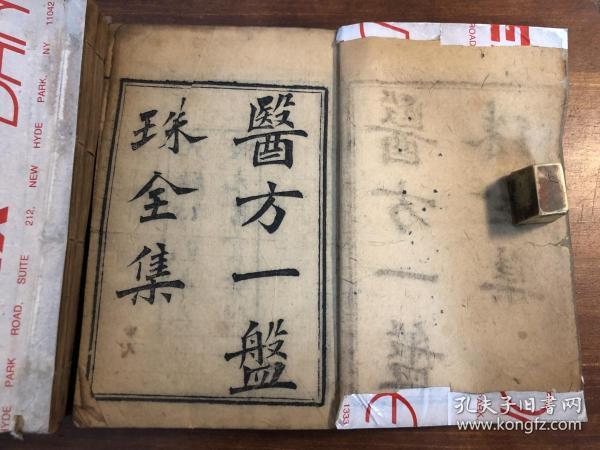 醫方一盤
珠全集
212, NEW HYDE PARK, NY 11042
PARK ROAD, SUITE
孔夫子旧书网
www.kongfz.com